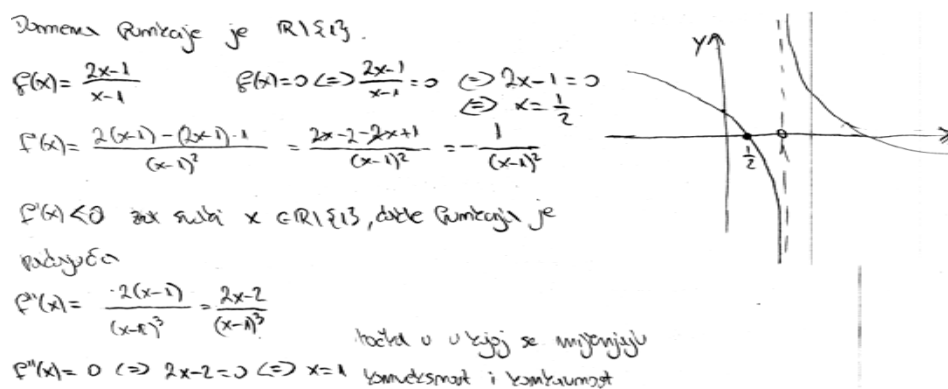 Domena funkcije je ℝ\{1}.
f(x) = \frac{2x-1}{x-1} f(x)=0 <=> \frac{2x-1}{x-1} = 0 <=> 2x-1=0
<=> x = \frac{1}{2}
f'(x) = \frac{2(x-1)-(2x-1)·1}{(x-1)^2} = \frac{2x-2-2x+1}{(x-1)^2} = -\frac{1}{(x-1)^2}
f'(x)<0 za svaki x ∈ ℝ\{1}, dakle funkcija je
padajuća
f''(x) = \frac{·2(x-1)}{(x-1)^3} = \frac{2x-2}{(x-1)^3}
točka u kojoj se mijenjaju
f''(x) = 0 <=> 2x-2=0 <=> x=1 konveksnost i konkavnost
y
\frac{1}{2}